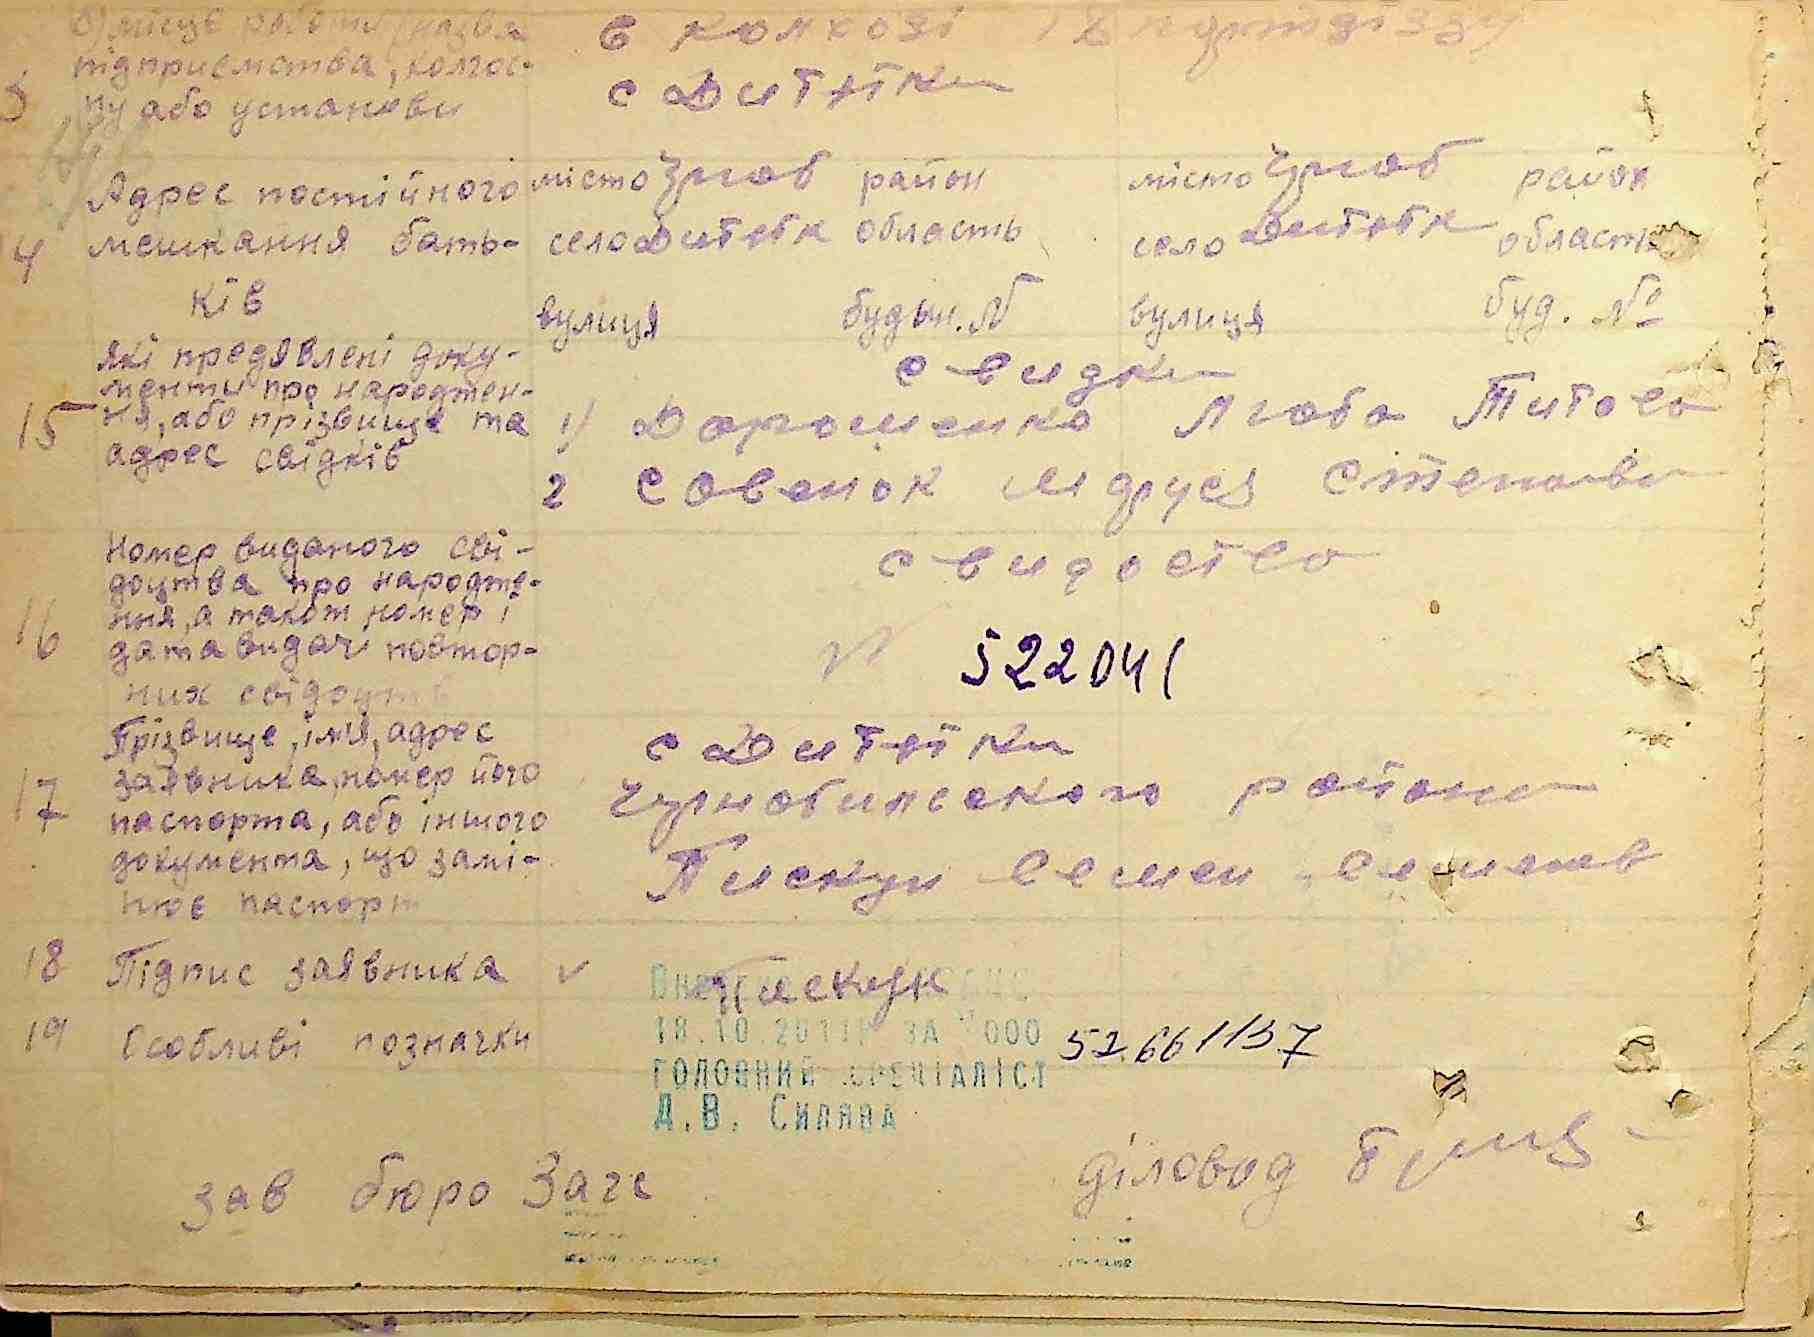 в) місце роботи (назва
підприємства, колгос-
пу або установи
в колхозі
с Дитятки
4 Адрес постійного
мешкання бать-
ків
місто Чорноб район
село Дитятк область
вулиця будын. №
місто Чорноб район
село Дитятк область
вулиця буд. №
15 які предявлені доку-
менти про народжен-
ня, або прізвище та
адрес свідків
свидки
1) Дорошенко Люба Титова
2 Савенок Степанов
16 Номер виданого сві-
доцтва про народже-
ння, а також номер і
дата видачі повтор-
них свідоцтв
свидоство
№ 522041
17 Прізвище, імя, адрес
заявника, номер його
паспорта, або іншого
документа, що замі-
нює паспорт
с Дитятки
Чорнобильского района
Пискун Семен
18 Підпис заявника v Пискун
19 Особливі позначки
18.10.2011 ЗА 000
ГОЛОВНИЙ СПЕЦІАЛІСТ
Д.В.
зав бюро Загс
діловод